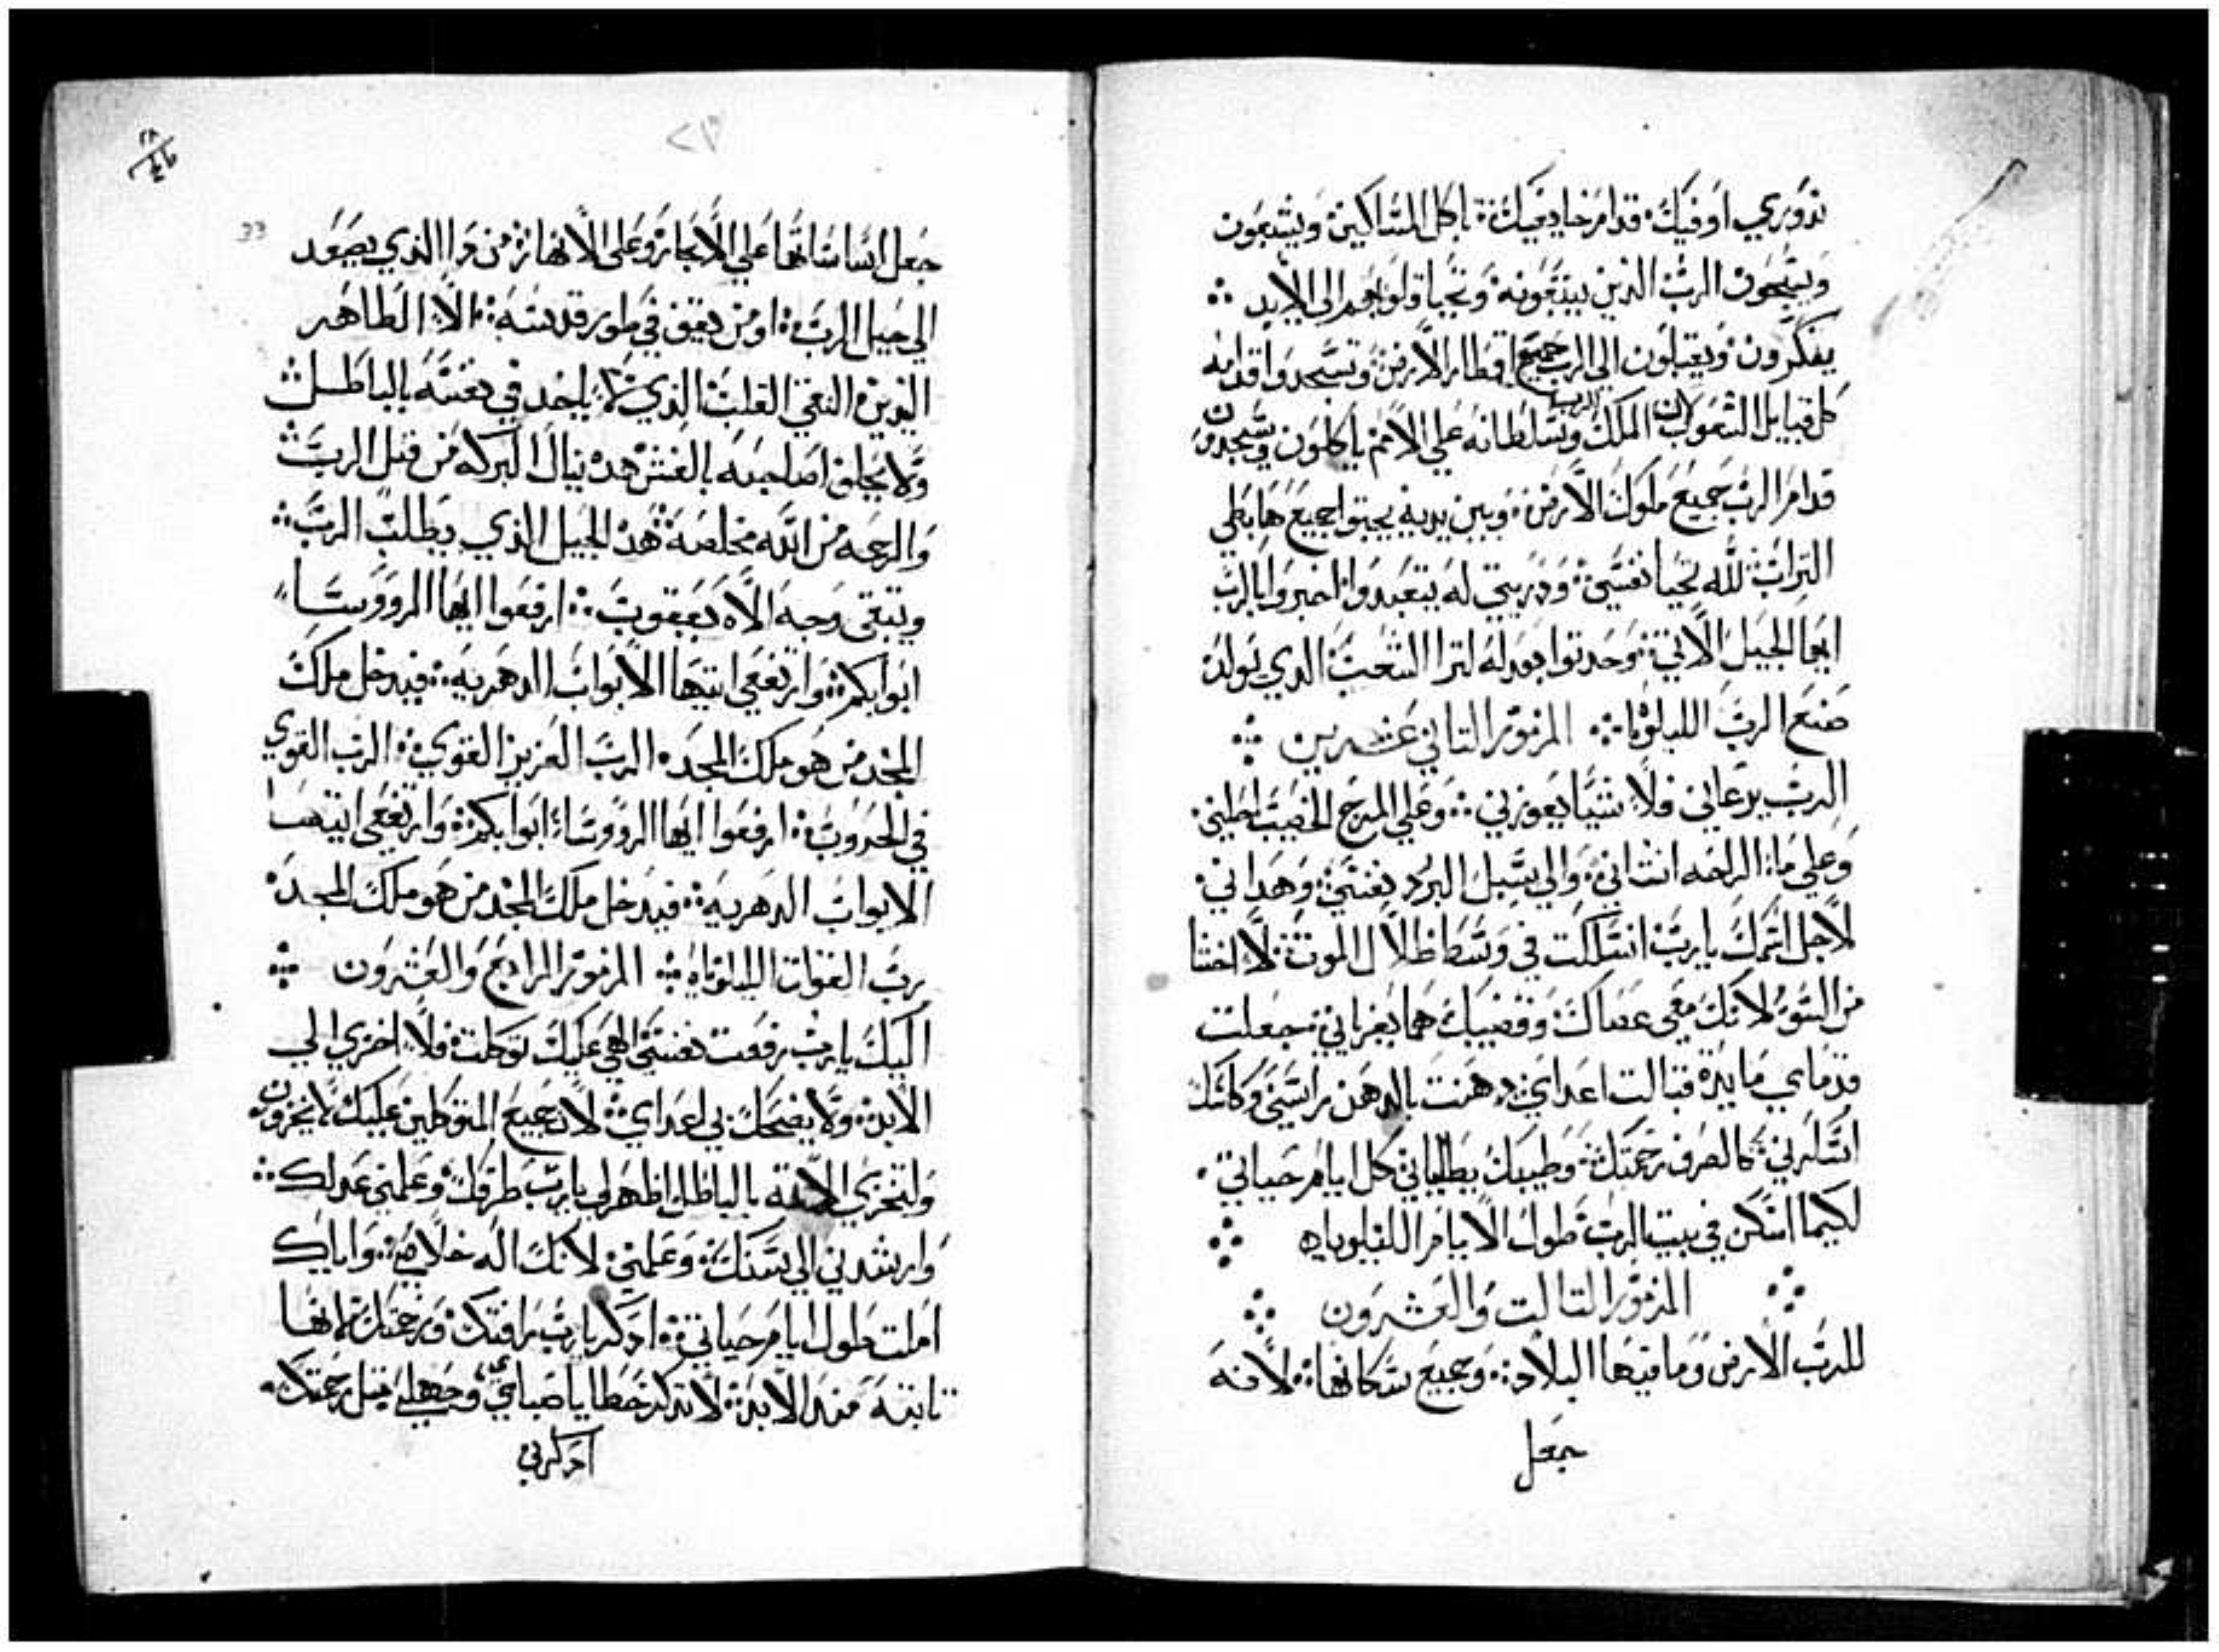 ندوري اوفيك قدام خايفيك ياكل المساكين ويشبعون
ويسبحون الرب الذين يبتغونه وتحيا قلوبهم الى الابد
يفكرون ويقبلون الي الرب جميع اقطار الارض وتسجدوا قدامه
كل قبايل الشعوب لان الملك للرب وسلطانه علي الامم ياكلون ويسجدون
قدام الرب جميع ملوك الارض وبين يديه يجتوا جميع هابطي
التراب لله تحيا نفسي ودريتي له يتعبدوا اخبروا بالرب
ايها الجيل الاتي وحدتوا بعدله لترا الشعب الدي يولد
صنع الرب الليلوياه المزمور التاني عشرين
الرب يرعاني فلا شيا يعوزني وعلي المرج الخصيب احلني
وعلي ماء الراحه انشاني والي سبل البرد نفسي وهداني
لاجل اسمك يارب انسلكت في وسط ظلال الموت لا اخشا
من السوء لانك معي عصاك وقضيبك هما يغرياني جعلت
قدماي مايدة قبالت اعداي دهنت بالدهن راسي وكاسك
اسكرني كالصرف رحمتك وطيبك يطلباني كل ايام حياتي
لكيما اسكن في بيت الرب طول الايام الليلوياه
المزمور التالت والعشرون
للرب الارض وما فيها البلاد وجميع سكانها لانه
جعل
33
جعل اساساتها علي الابحار وعلى الانهار من دا الذي يصعد
الي جبل الرب او من يقف في طور قدسه الا الطاهر
اليدين النقي القلب الذي لا ياخد في نفسه بالباطل
ولا يحلف لصاحبه بالغش هد نيال البركه من قبل الرب
والرحمه من الله مخلصه هد الجيل الذي يطلب الرب
ويبتغي وجه الاه يعقوب ارفعوا ايها الرووسا
ابوابكم وارتفعي ايتها الابواب الدهريه فيدخل ملك
المجد من هو ملك المجد الرب العزيز القوي الرب القوي
في الحروب ارفعوا ايها الرووسا ابوابكم وارتفعي ايتها
الابواب الدهريه فيدخل ملك المجد من هو ملك المجد
رب القوات الليلوياه المزمور الرابع والعشرون
اليك يارب رفعت نفسي الهي عليك توكلت فلا اخزي الي
الابد ولا يضحك بي اعداي لان جميع المتوكلين عليك لا يخزون
وليخزي بالباطل اظهر لي يارب طرقك وعلمني عدلك
وارشدني الي سننك وعلمني لانك اله خلاصي واياك
املت طول ايام حياتي ادكر يارب رافتك ورحمتك لانها
تابته مند الابد لا تدكر خطايا صباي وجهلي متل رحمتك
ادكرني